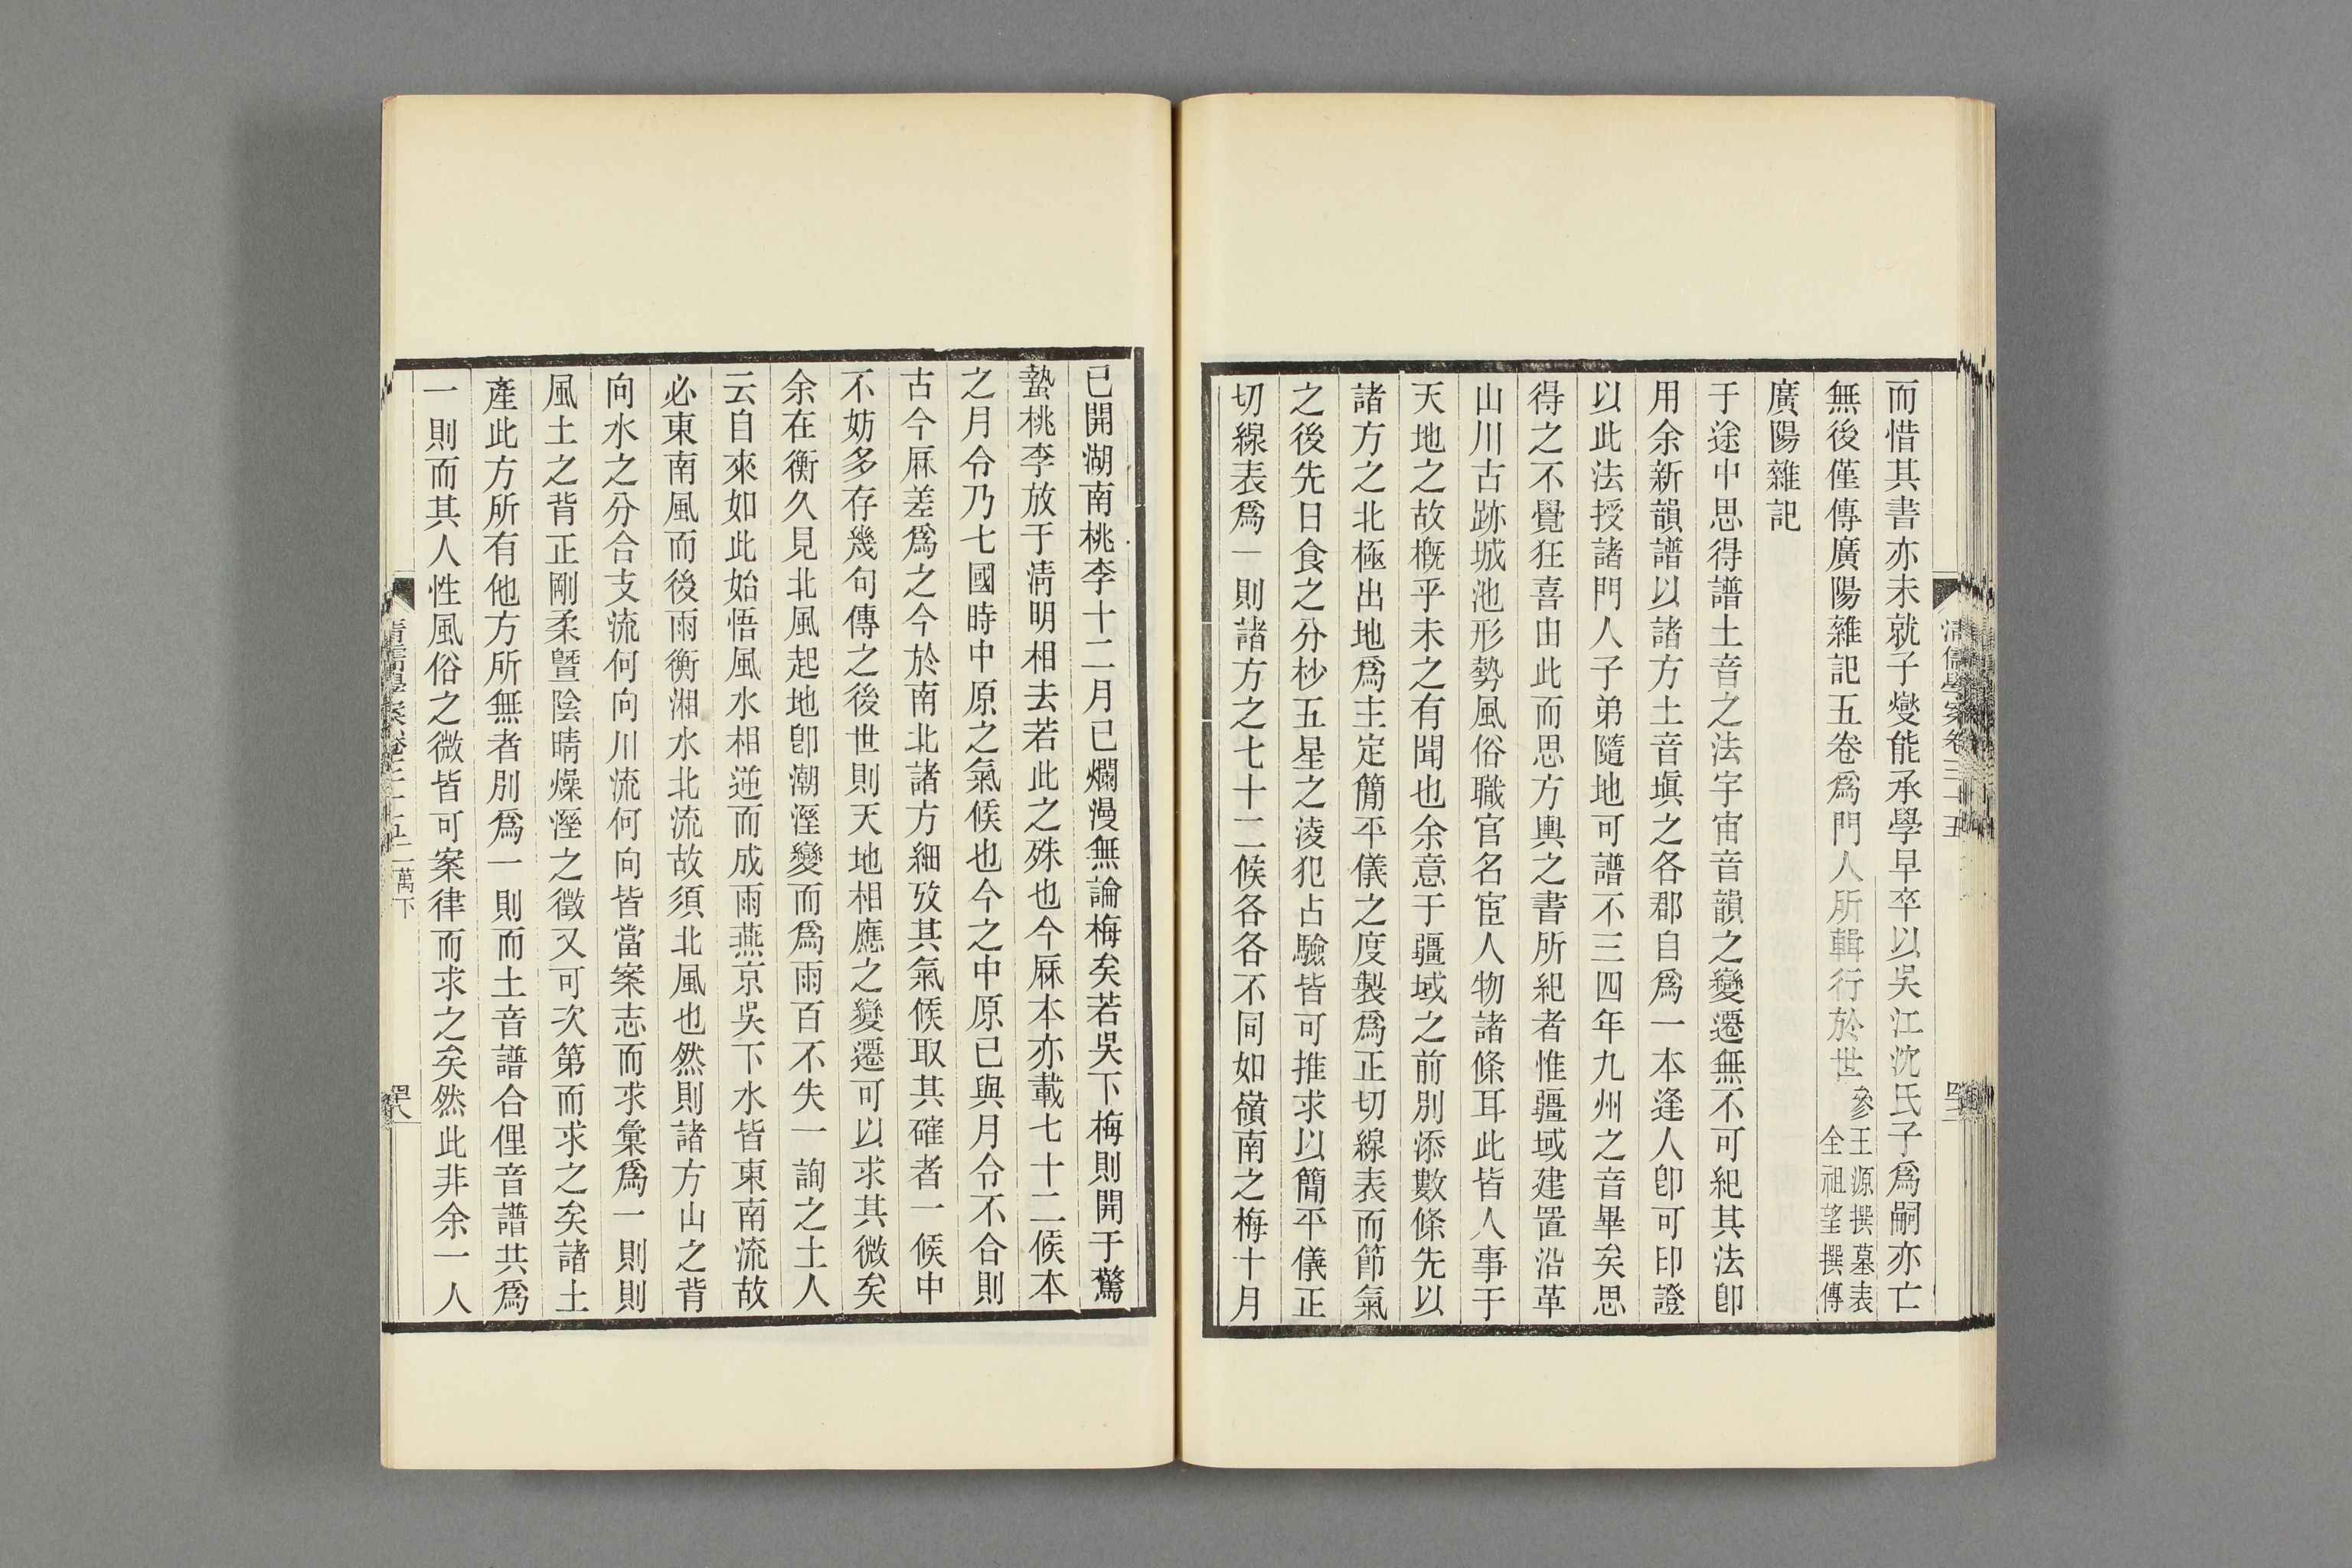 而惜其書亦未就子燮能承學早卒以吳江沈氏子爲嗣亦亡
無後僅傳廣陽雜記五卷爲門人所輯行於世參王源撰墓表
全祖望撰傳
廣陽雜記
于途中思得譜土音之法宇宙音韻之變遷無不可紀其法卽
用余新韻譜以諸方土音塡之各郡自爲一本逢人卽可印證
以此法授諸門人子弟隨地可譜不三四年九州之音畢矣思
得之不覺狂喜由此而思方輿之書所紀者惟疆域建置沿革
山川古跡城池形勢風俗職官名宦人物諸條耳此皆人事于
天地之故槪乎未之有聞也余意于疆域之前別添數條先以
諸方之北極出地爲主定簡平儀之度製爲正切線表而節氣
之後先日食之分杪五星之淩犯占驗皆可推求以簡平儀正
切線表爲一則諸方之七十二候各各不同如嶺南之梅十月
已開湖南桃李十二月已爛漫無論梅矣若吳下梅則開于驚
蟄桃李放于淸明相去若此之殊也今厤本亦載七十二候本
之月令乃七國時中原之氣候也今之中原已與月令不合則
古今厤差爲之今於南北諸方細攷其氣候取其確者一候中
不妨多存幾句傳之後世則天地相應之變遷可以求其微矣
余在衡久見北風起地卽潮溼變而爲雨百不失一詢之土人
云自來如此始悟風水相逆而成雨燕京吳下水皆東南流故
必東南風而後雨衡湘水北流故須北風也然則諸方山之背
向水之分合支流何向川流何向皆當案志而求彙爲一則則
風土之背正剛柔曁陰晴燥溼之徵又可次第而求之矣諸土
產此方所有他方所無者別爲一則而土音譜合俚音譜共爲
一則而其人性風俗之微皆可案律而求之矣然此非余一人
清儒學案卷三十五